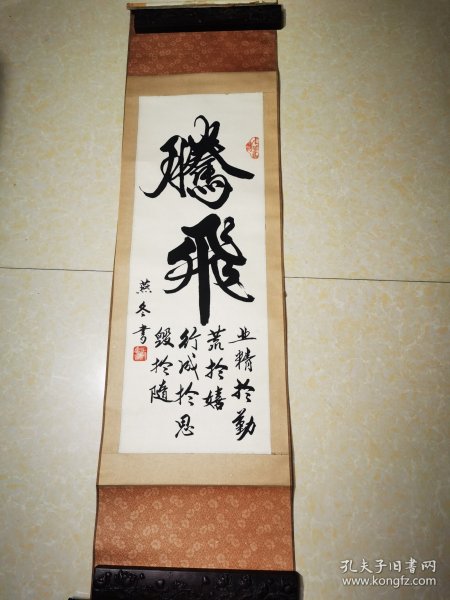 騰飛
业精於勤
荒於嬉
行成於思
毁於隨
燕冬書
孔夫子旧书网
www.kongfz.com